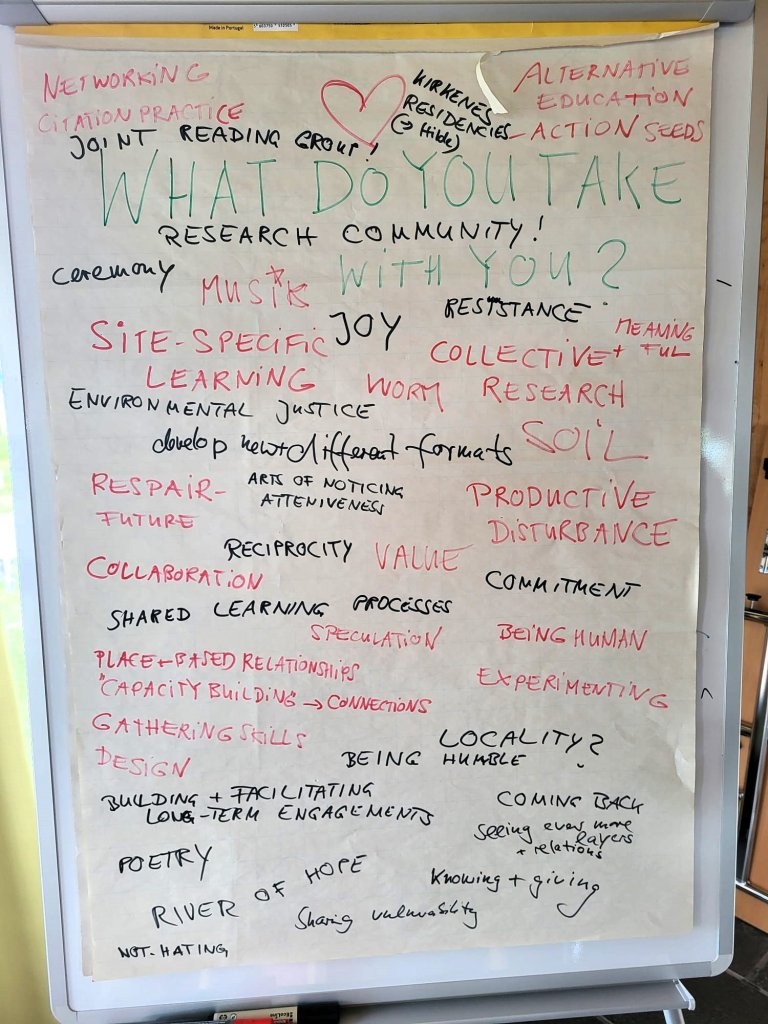 Made in Portugal
NETWORKING
CITATION PRACTICE
JOINT READING GROUP!
KIRKENES
RESIDENCIES
(→ Hilde)
ALTERNATIVE
EDUCATION
- ACTION SEEDS
WHAT DO YOU TAKE
RESEARCH COMMUNITY!
WITH YOU?
ceremony
MUSIK
JOY
RESISTANCE
SITE-SPECIFIC
LEARNING
COLLECTIVE + MEANING
FUL
WORM RESEARCH
ENVIRONMENTAL JUSTICE
develop new+different formats
SOIL
RESPAIR-
FUTURE
ARTS OF NOTICING
ATTENIVENESS
PRODUCTIVE
DISTURBANCE
RECIPROCITY
VALUE
COLLABORATION
COMMITMENT
SHARED LEARNING PROCESSES
SPECULATION
BEING HUMAN
PLACE-BASED RELATIONSHIPS
"CAPACITY BUILDING" → CONNECTIONS
EXPERIMENTING
GATHERING SKILLS
DESIGN
LOCALITY?
BEING HUMBLE
BUILDING + FACILITATING
LONG-TERM ENGAGEMENTS
COMING BACK
seeing ever more
layers
+ relations
POETRY
RIVER OF HOPE
Knowing + giving
Sharing vulnerability
NOT-HATING